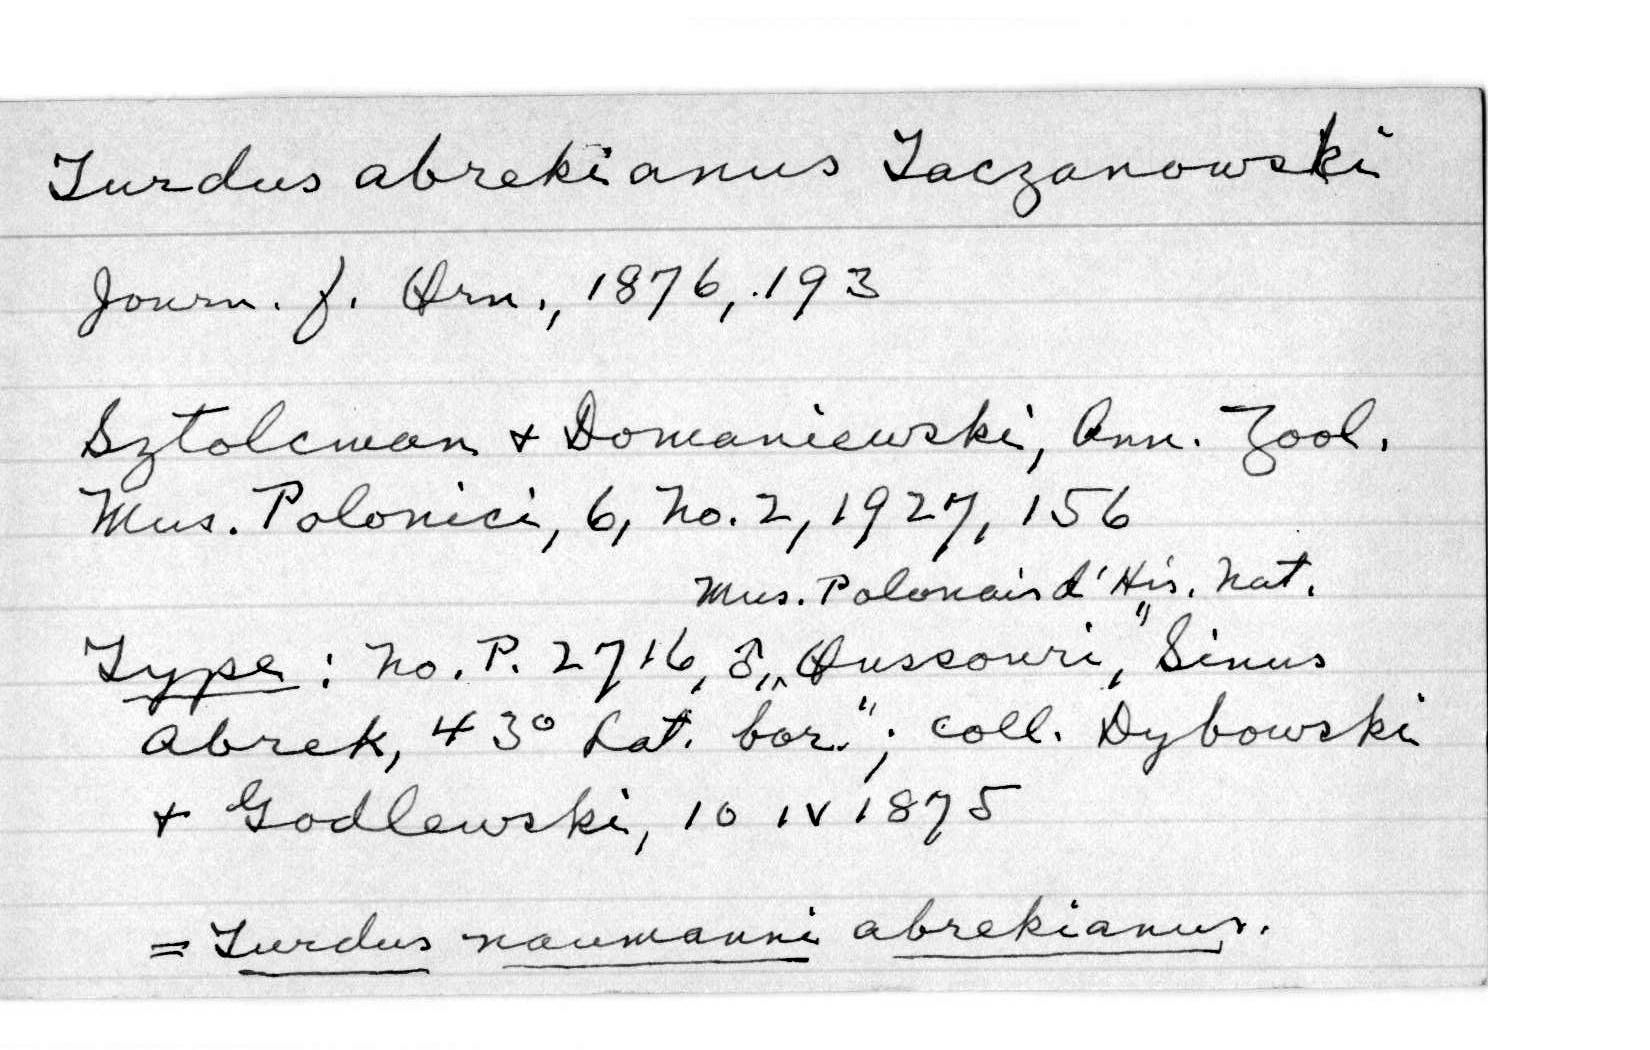 Turdus abrekianus Taczanowski
Journ. f. Orn., 1876, 193
Sztolcman + Domaniewski, Ann. Zool.
Mus. Polonici, 6, No. 2, 1927, 156
Mus. Polonais d'His. Nat.
Type: No. P. 2716, ♂, „Oussouri", Sinus
Abrek, 43° Lat. bor."; coll. Dybowski
+ Godlewski, 10 IV 1875
= Turdus naumanni abrekianus.